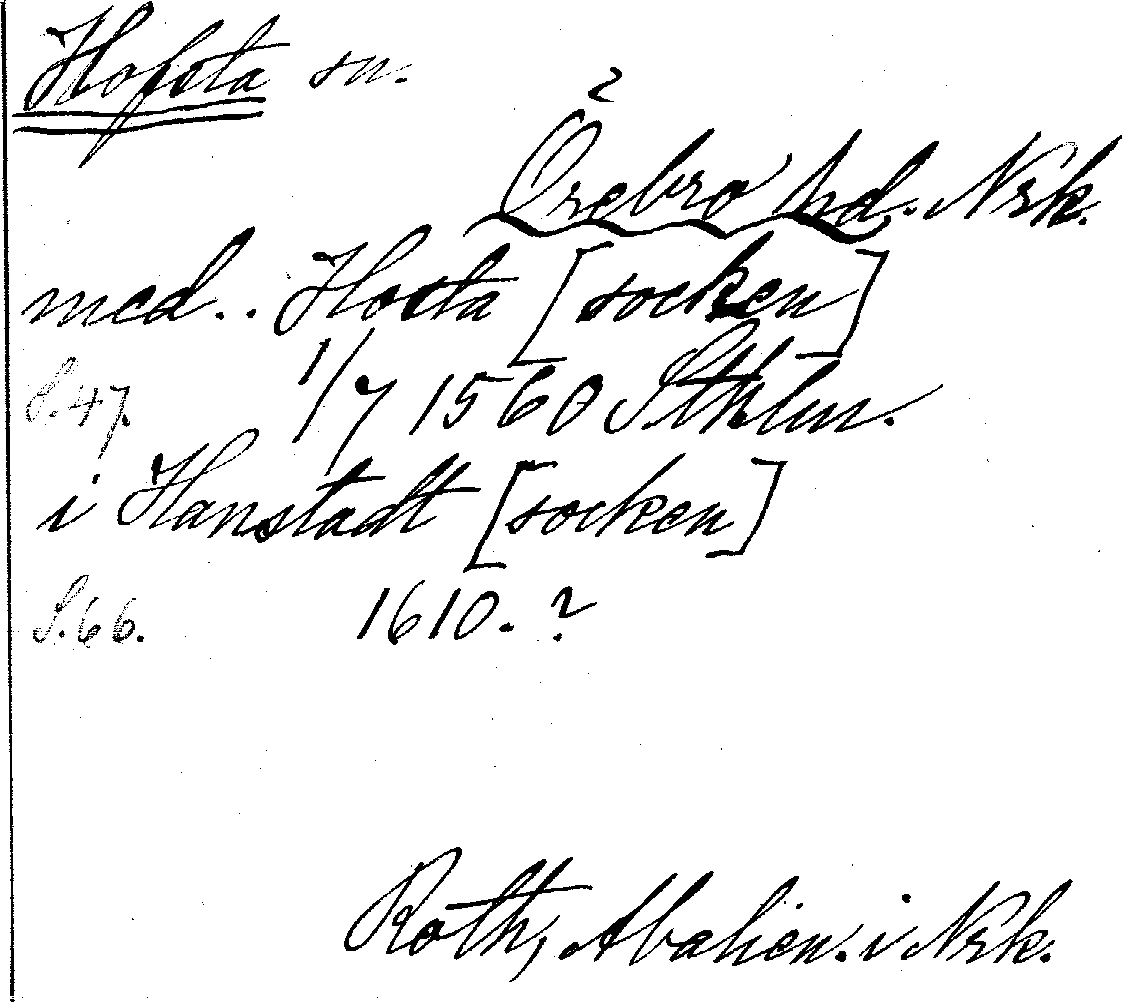 Hofsta sn.
Örebro hd. Nrk.
med.. Hosta [socken]
S.47. 1/7 1560 Sthlm.
i Hanstadt [socken]
S.66. 1610. ?
Roth, Abalien. i Nrk.